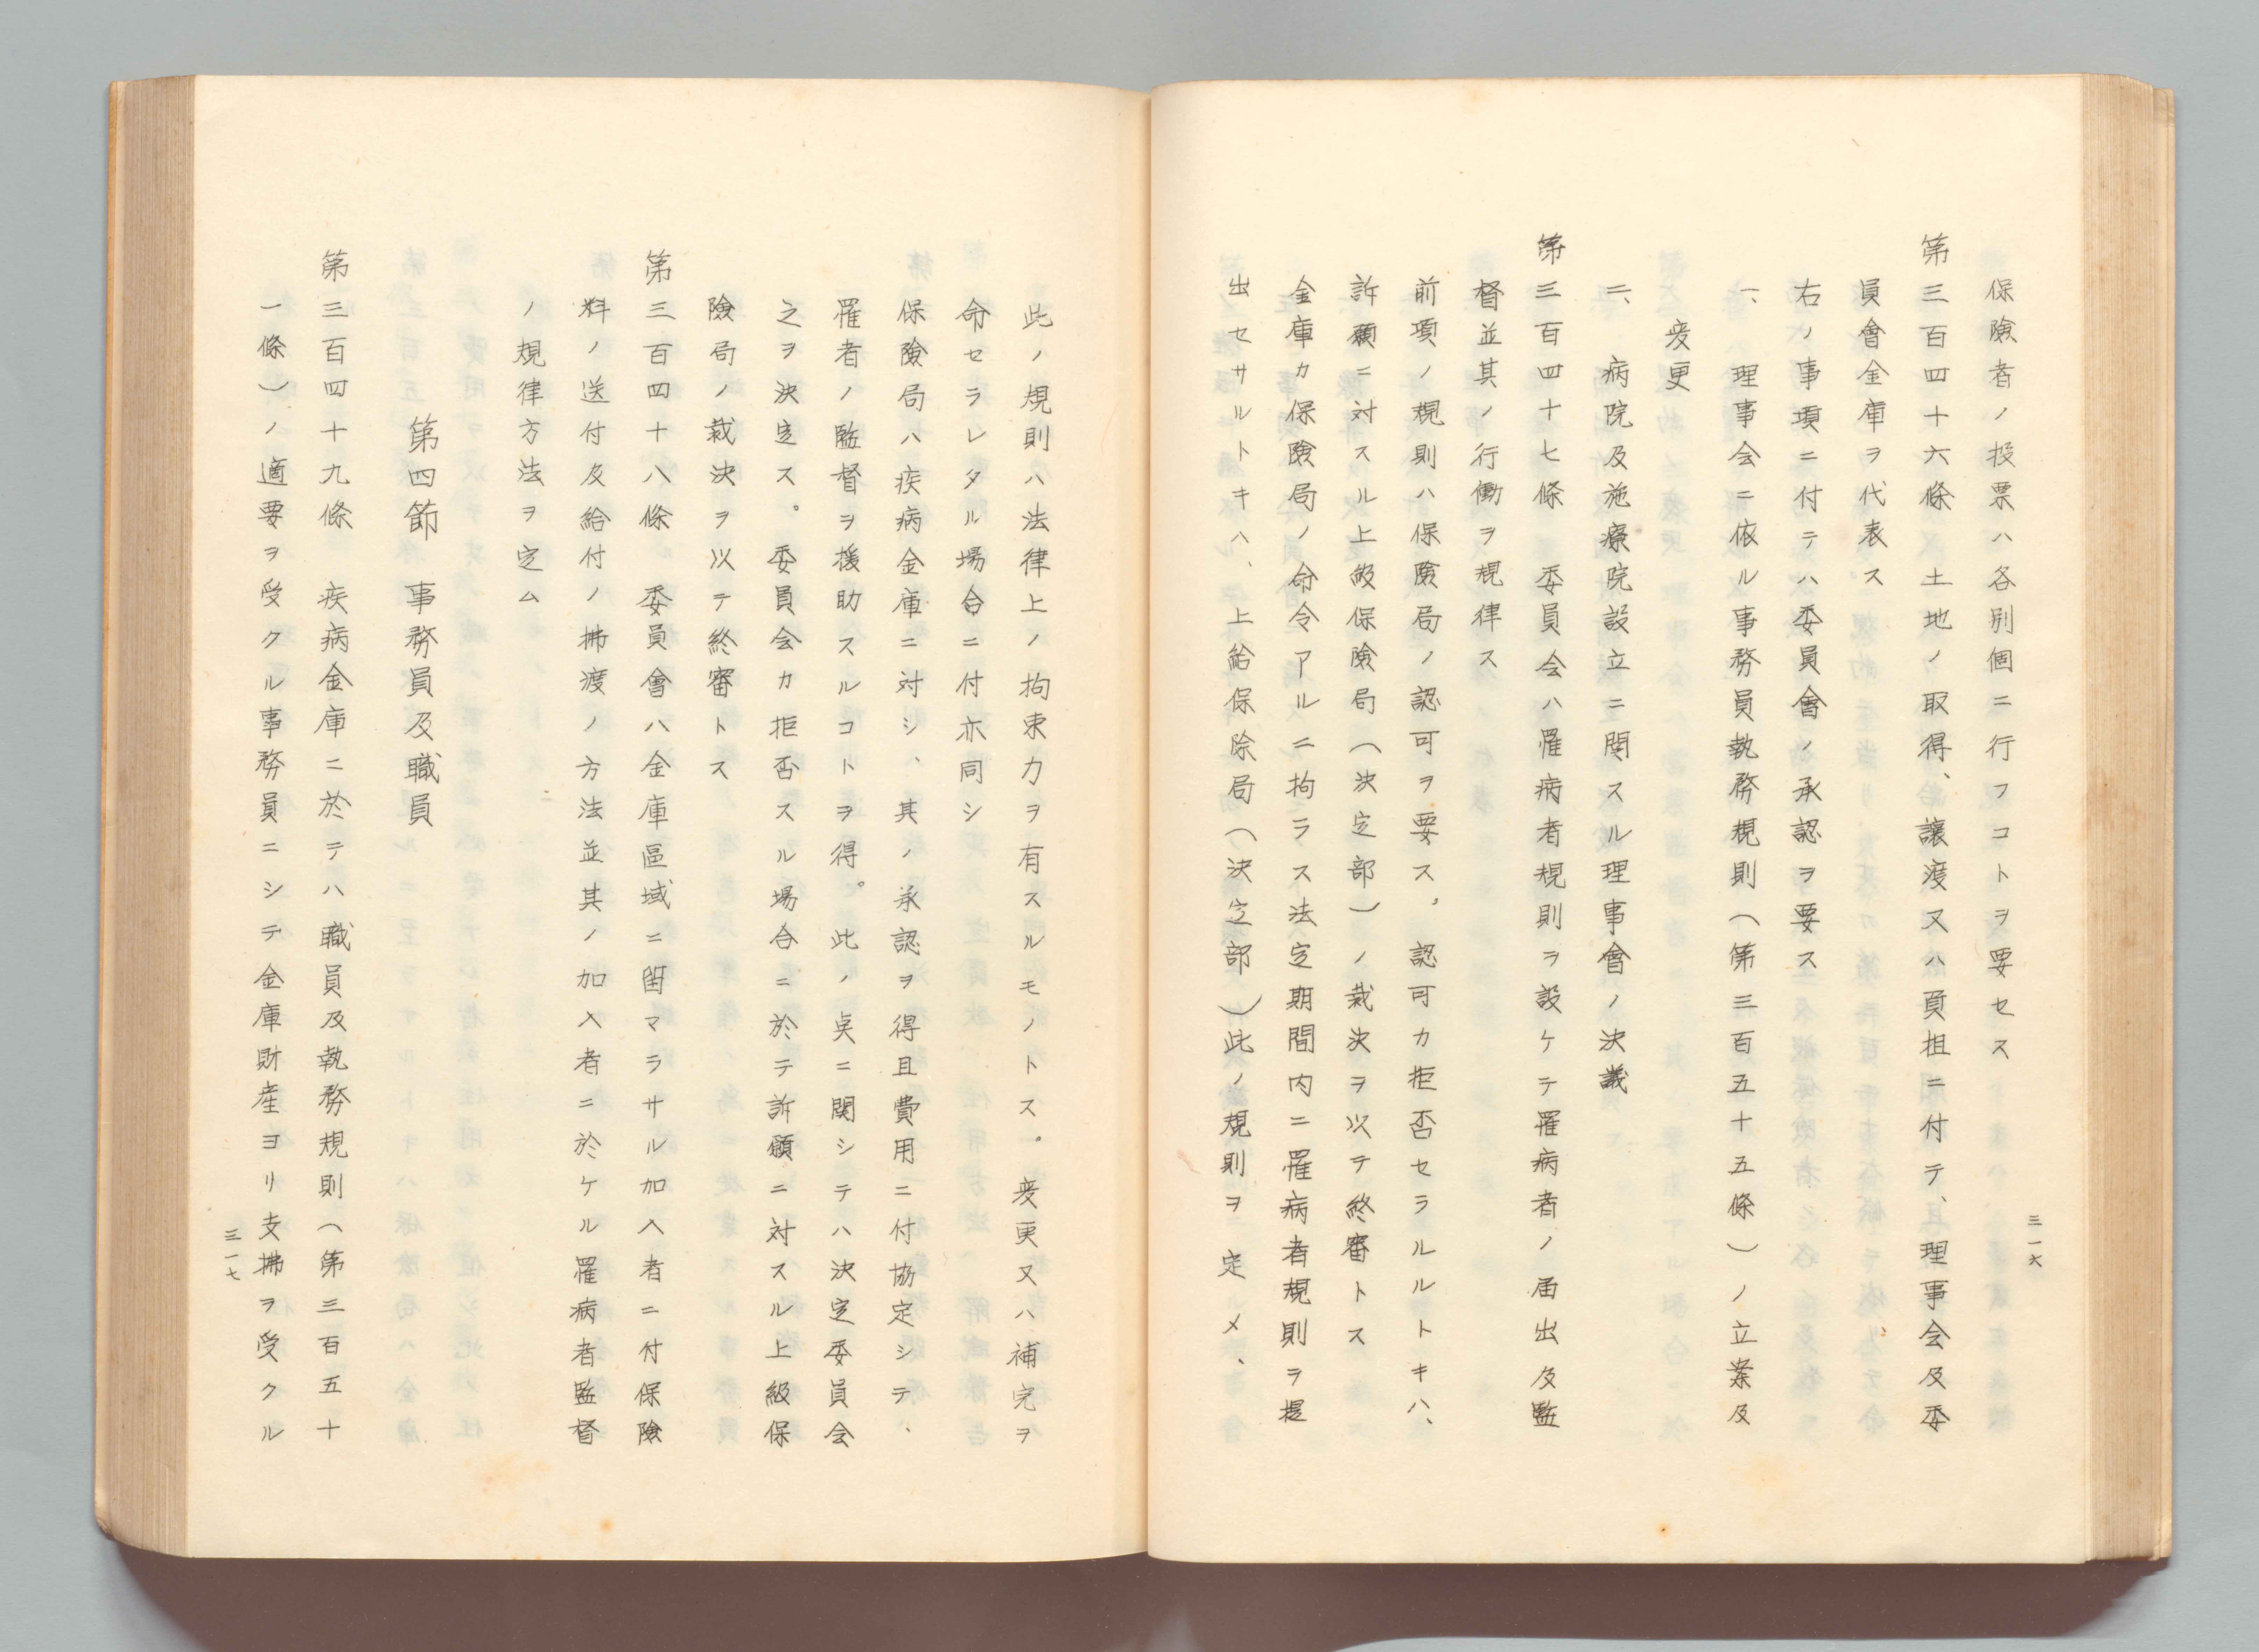 三一六
保險者ノ投票ハ各別個ニ行フコトヲ要セス
第三百四十六條　土地ノ取得、讓渡又ハ負担ニ付テ、且理事会及委
員會金庫ヲ代表ス
右ノ事項ニ付テハ委員會ノ承認ヲ要ス
一、理事会ニ依ル事務員執務規則（第三百五十五條）ノ立案及
変更
二、病院及施療院設立ニ関スル理事會ノ決議
第三百四十七條　委員会ハ罹病者規則ヲ設ケテ罹病者ノ届出及監
督並其ノ行働ヲ規律ス
前項ノ規則ハ保險局ノ認可ヲ要ス。認可カ拒否セラルルトキハ、
訴願ニ対スル上級保險局（決定部）ノ裁決ヲ以テ終審トス
金庫カ保險局ノ命令アルニ拘ラス法定期間内ニ罹病者規則ヲ提
出セサルトキハ、上給保除局（決定部）此ノ規則ヲ定メ、
此ノ規則ハ法律上ノ拘束力ヲ有スルモノトス。変更又ハ補完ヲ
命セラレタル場合ニ付亦同シ
保險局ハ疾病金庫ニ対シ、其ノ承認ヲ得且費用ニ付協定シテ、
罹者ノ監督ヲ援助スルコトヲ得。此ノ点ニ関シテハ決定委員会
之ヲ決定ス。委員会カ拒否スル場合ニ於テ訴願ニ対スル上級保
險局ノ裁決ヲ以テ終審トス
第三百四十八條　委員會ハ金庫區域ニ留マラサル加入者ニ付保險
料ノ送付及給付ノ拂渡ノ方法並其ノ加入者ニ於ケル罹病者監督
ノ規律方法ヲ定ム
第四節　事務員及職員
第三百四十九條　疾病金庫ニ於テハ職員及執務規則（第三百五十
一條）ノ適要ヲ受クル事務員ニシテ金庫財産ヨリ支拂ヲ受クル
三一七